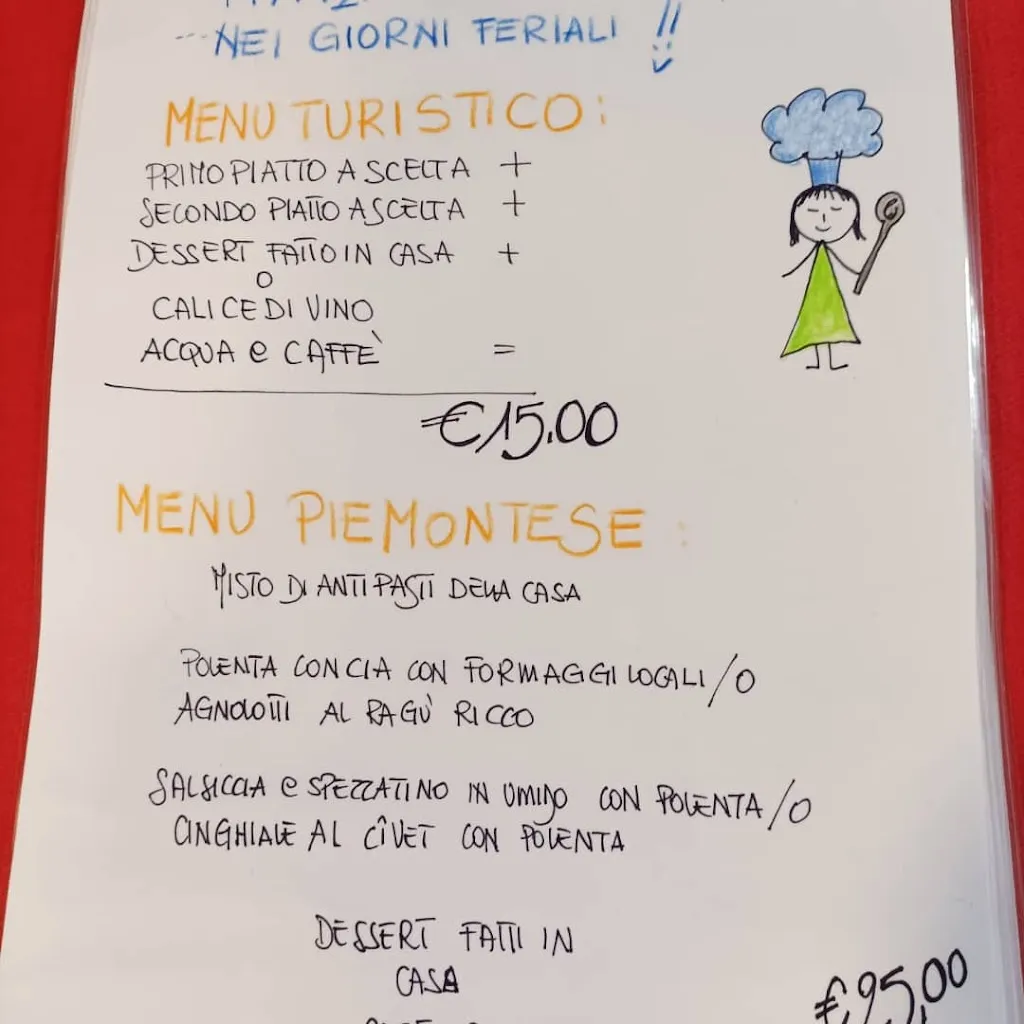 ...NEI GIORNI FERIALI !!
MENU TURISTICO:
PRIMO PIATTO A SCELTA +
SECONDO PIATTO A SCELTA +
DESSERT FATTO IN CASA +
O
CALICE DI VINO
ACQUA e CAFFÈ =
€15.00
MENU PIEMONTESE:
MISTO DI ANTIPASTI DELLA CASA
POLENTA CONCIA CON FORMAGGI LOCALI/O
AGNOLOTTI AL RAGÙ RICCO
SALSICCIA e SPEZZATINO IN UMIDO CON POLENTA/O
CINGHIALE AL CÎVET CON POLENTA
DESSERT FATTI IN
CASA